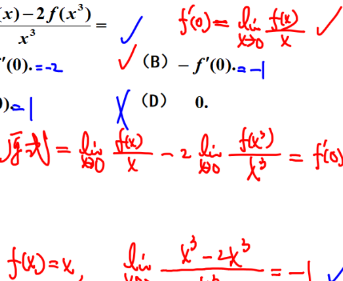 (x) − 2f(x³) / x³ = ✓ f'(0) = lim x→0 f(x)/x ✓
'(0). = -2 ✓ (B) − f'(0). = -1
)= 1 X (D) 0.
原式 = lim x→0 f(x)/x - 2 lim x→0 f(x³)/x³ = f'(0)
f(x) = x, lim x³ - 2x³ / = -1 ✓